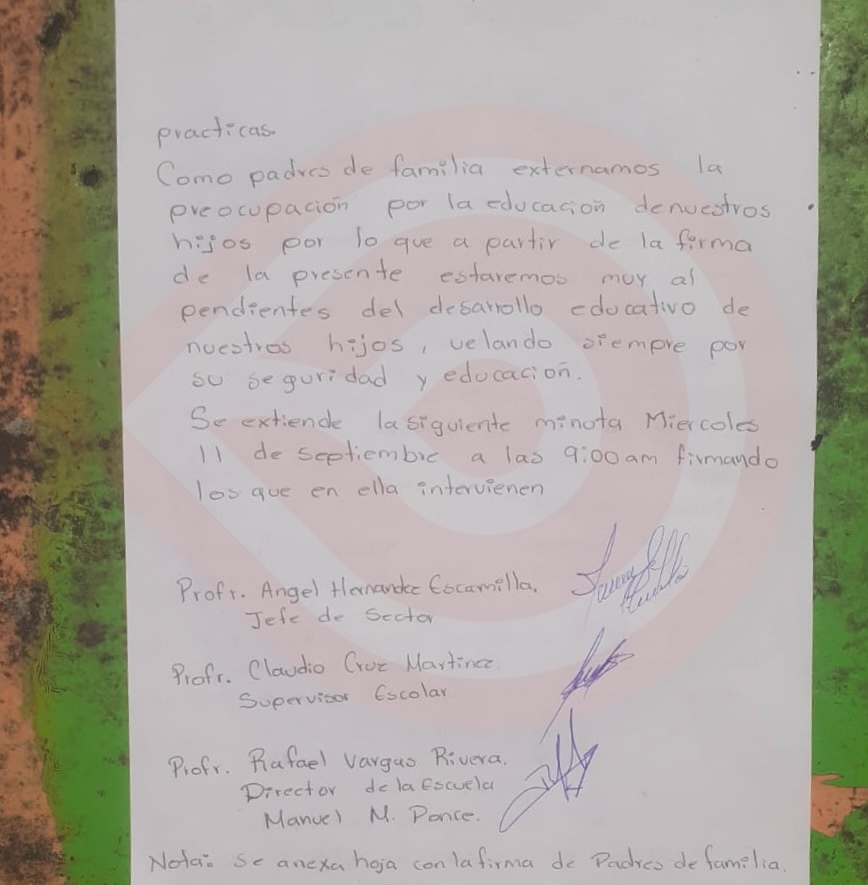 practicas.
Como padres de familia externamos la
preocupación por la educación denuestros
hijos por lo que a partir de la firma
de la presente estaremos muy al
pendientes del desarrollo educativo de
nuestros hijos, velando siempre por
su seguridad y educación.
Se extiende lasiguiente minuta Miercoles
11 de septiembre a las 9:00am firmando
los que en ella intervienen
Profr. Angel Hernandez Escamilla.
Jefe de Sector
Profr. Claudio Cruz Martinez.
Supervisor Escolar
Profr. Rafael Vargas Rivera.
Director de la Escuela
Manuel M. Ponce.
Nota: Se anexa hoja con la firma de Padres de familia.